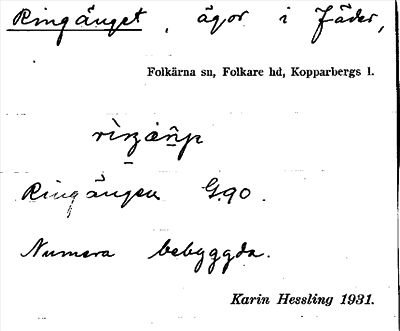 Ringänget, ägor i Jäder,
Folkärna sn, Folkare hd, Kopparbergs l.
Ringängen G.90.
Numera bebyggda.
Karin Hessling 1931.